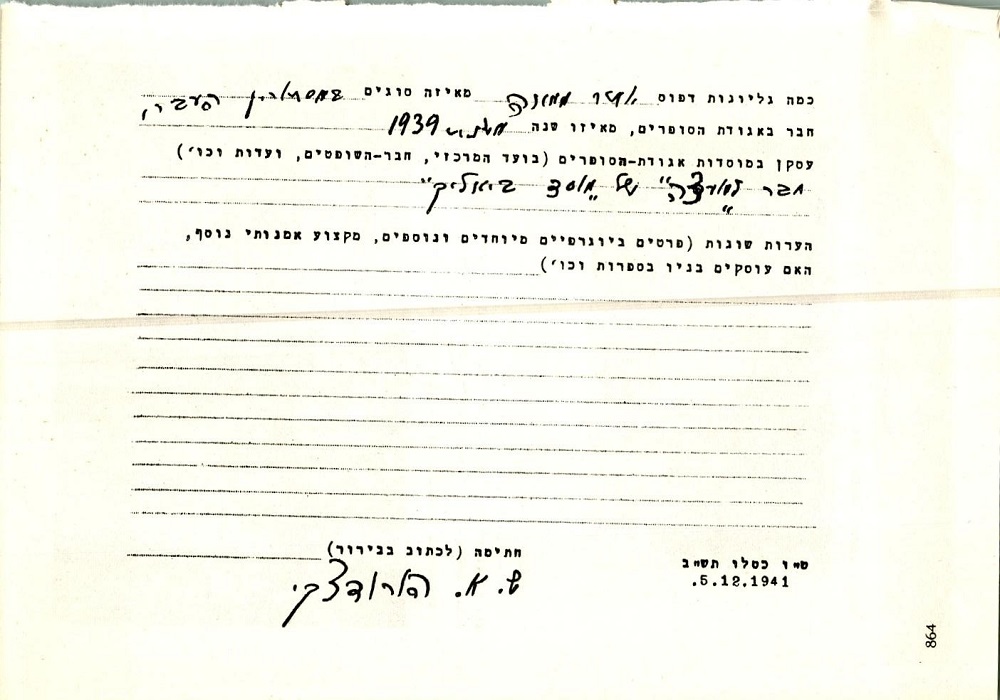 כמה גליונות דפוס יותר ממאה מאיזה סוגים הערכי,
חבר באגודת הסופרים, מאיזו שנה משנת 1939
עסקן במוסדות אגודת-הסופרים (בועד המרכזי, חבר-השופטים, ועדות וכו')
חבר "לועדה" של "מוסד ביאליק"
הערות שונות (פרטים ביוגרפיים מיוחדים ונוספים, מקצוע אמנותי נוסף,
האם עוסקים בניו בספרות וכו')
חתימה (לכתוב בבירור)
ט"ו כסלו תש"ב
5.12.1941.
ש. א. הורודצקי
864